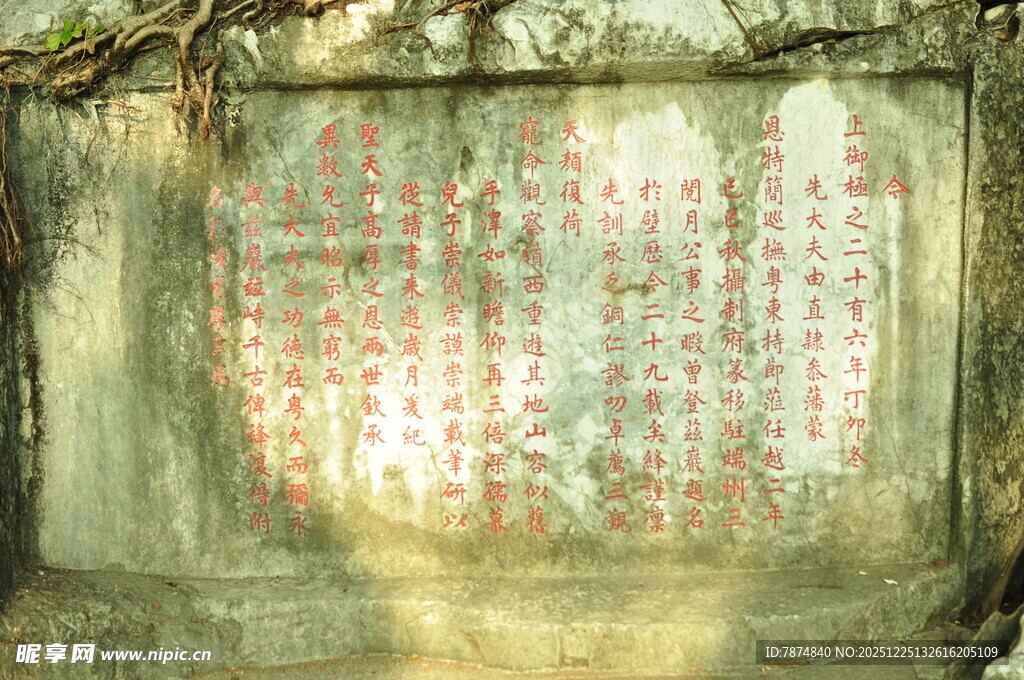 今
上御極之二十有六年丁卯冬
先大夫由直隸叅藩蒙
恩特簡巡撫粵東持節蒞任越二年
己巳秋攝制府篆移駐端州三
閱月公事之暇曾登茲巖題名
於壁歷今二十九載矣絳謹凛
先訓承乏銅仁謬叨卓薦三覲
天顏復荷
寵命觀察嶺西重遊其地山容似舊
手澤如新瞻仰再三倍深孺慕
兒子崇儀崇謨崇端載筆研以
從請書来遊歲月爰紀
聖天子高厚之恩兩世欽承
異數允宜昭示無窮而
先大夫之功德在粵久而彌永
與茲巖竝峙千古俾絳濅得附
昵享网 www.nipic.cn
ID:7874840 NO:20251225132616205109